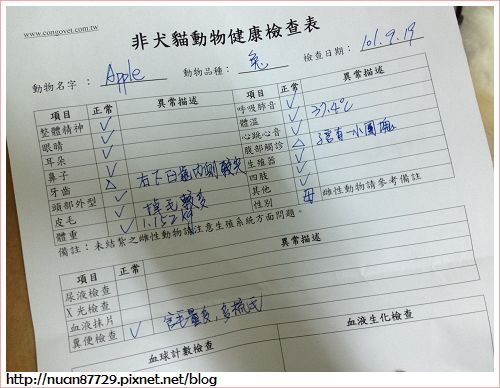 www.congovet.com.tw
非犬貓動物健康檢查表
動物名字： Apple 動物品種： 兔 檢查日期： 101.9.19
項目 正常 異常描述
整體精神 ✓ 呼吸肺音 ✓
眼睛 ✓ 體溫 ✓ 37.4℃
耳朵 ✓ 心跳心音 ✓
鼻子 ✓ 腹部觸診 △
牙齒 △ 右下臼齒內側較尖 生殖器 ✓
頭部外型 ✓ 四肢 ✓
皮毛 ✓ 換毛較多 其他
體重 ✓ 1.152kg 性別 母 雌性動物請參考備註
備註：未結紮之雌性動物請注意生殖系統方面問題。
項目 正常 異常描述
尿液檢查
X光檢查
血液抹片
糞便檢查 ✓ 含毛量多,多梳毛
血球計數檢查 血液生化檢查
http://nuan87729.pixnet.net/blog